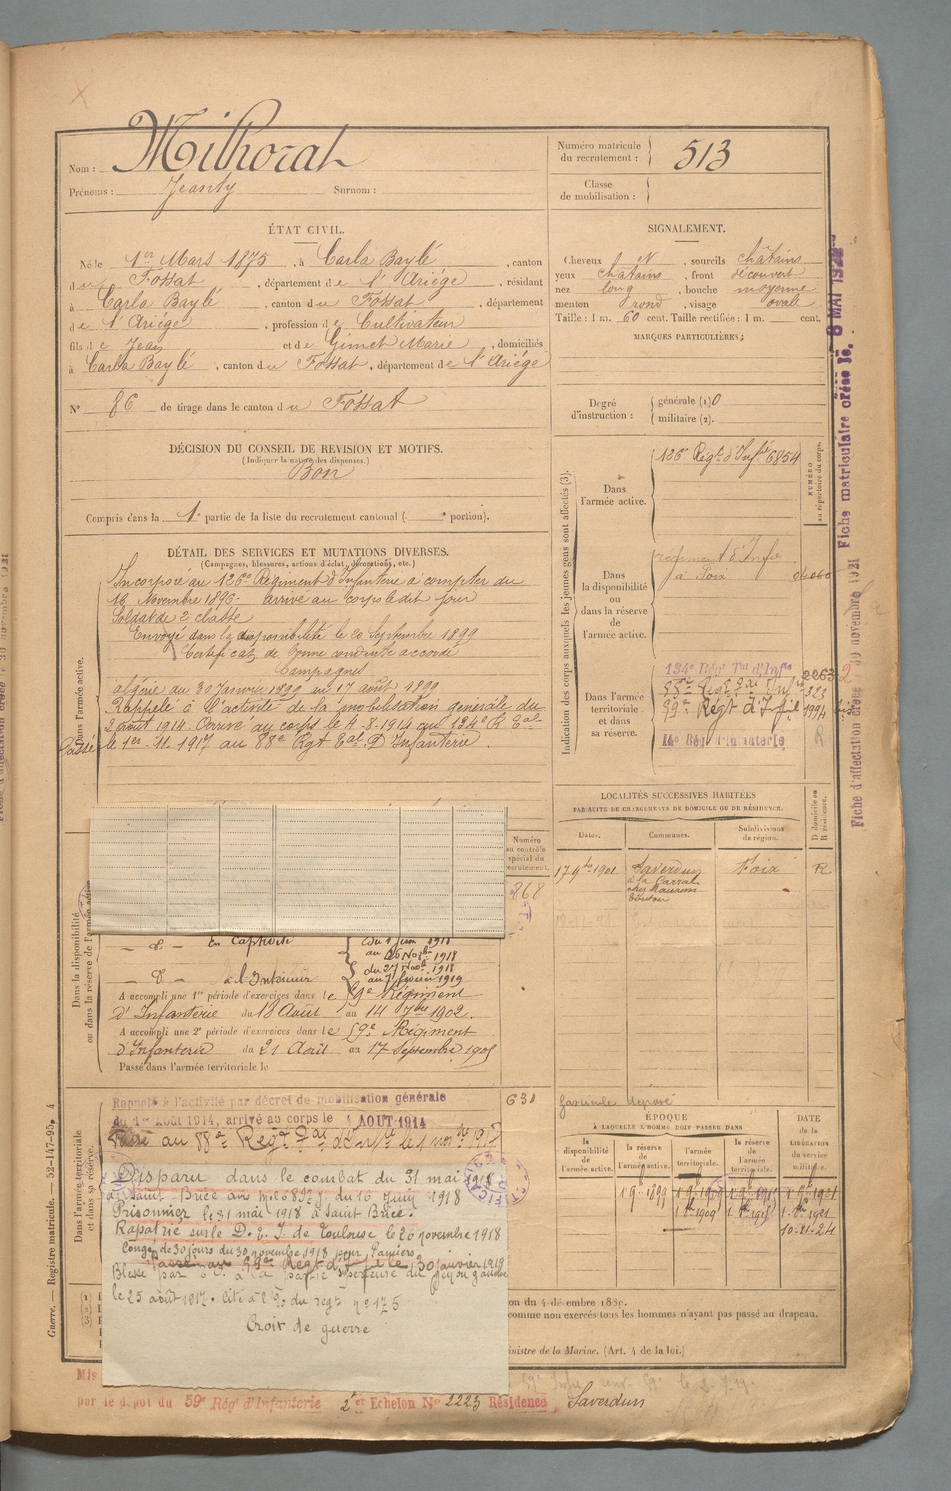 Milhorat
Nom :
Prénoms : Jeanty Surnom :
Numéro matricule du recrutement : 513
Classe de mobilisation :
ÉTAT CIVIL.
Né le 1er Mars 1875, à Carla Baylé, canton
du Fossat, département de l'Ariége, résidant
à Carla Baylé, canton du Fossat, département
de l'Ariége, profession de Cultivateur
fils de Jean et de Gimet Marie, domiciliés
à Carla Baylé, canton du Fossat, département de l'Ariége
N° 86 de tirage dans le canton du Fossat
SIGNALEMENT.
Cheveux sourcils châtains
yeux châtains, front découvert
nez long, bouche moyenne
menton rond, visage ovale
Taille : 1 m. 60 cent. Taille rectifiée : 1 m. cent.
MARQUES PARTICULIÈRES :
Degré d'instruction : générale (1) 0
militaire (2).
DÉCISION DU CONSEIL DE REVISION ET MOTIFS.
(Indiquer la nature des dispenses.)
Bon
Compris dans la 1e partie de la liste du recrutement cantonal ( e portion).
DÉTAIL DES SERVICES ET MUTATIONS DIVERSES.
(Campagnes, blessures, actions d'éclat, décorations, etc.)
Dans l'armée active.
Incorporé au 126e Régiment d'Infanterie à compter du
16 Novembre 1896 arrivé au corps le dit jour
Soldat de 2e classe
Envoyé dans la disponibilité le 20 Septembre 1899
Certificat de bonne conduite accordé
Campagnes
algérie du 30 Janvier 1899 au 17 août 1899
Rappelé à l'activité de la mobilisation générale du
2 août 1914. Arrivé au corps le 4-8-1914 au 134e R Tal
Passé le 1er-11-1917 au 88e Rgt Tal D'Infanterie.
Indication des corps auxquels les jeunes gens sont affectés (3).
NUMÉRO au répertoire du corps.
Dans l'armée active.
126e Régt d'Infie 6854
Dans la disponibilité ou dans la réserve de l'armée active.
régiment d'Infie
à Foix
Dans l'armée territoriale et dans sa réserve.
134e Rég Tal d'Infie 2263
88e Régt Tal Inf 323
99e Régt d'Infie 1994
14e Rég d'Infanterie R
LOCALITÉS SUCCESSIVES HABITÉES
PAR SUITE DE CHANGEMENTS DE DOMICILE OU DE RÉSIDENCE.
Dates. Communes. Subdivisions de région. D domicile ou R résidence.
17 9bre 1901 Saverdun Foix R
Numéro au contrôle spécial du recrutement.
868
Dans la disponibilité ou dans la réserve de l'armée active
– d° – En Captivité du 1 Juin 1918
au 26 Nov 1918
– d° – à l'Intérieur du 27 Nov 1918
au 7 février 1919
A accompli une 1re période d'exercices dans le 59e Régiment
d'Infanterie du 18 Août au 14 7bre 1902.
A accompli une 2e période d'exercices dans le 59e Régiment
d'Infanterie du 21 Août au 17 Septembre 1905
Passé dans l'armée territoriale le
Dans l'armée territoriale et dans sa réserve.
Rappelé à l'activité par décret de mobilisation générale
du 1er Août 1914, arrivé au corps le 4 AOUT 1914
Passé au 88e Régt Tal d'Infie le 1 nov 1917
G31
Disparu dans le combat du 31 mai 1918
à Saint Brice avis Mel du 16 Juin 1918
Prisonnier le 31 mai 1918 à Saint Brice.
Rapatrié sur le D. d. I. de Toulouse le 26 novembre 1918
Congé de 30 jours du 30 novembre 1918 pour Pamiers
Passé au 99e Régt d'Infie le 30 janvier 1919
Blessé par à la partie supérieure du genou gauche
le 25 août 1917. Cité à l'o/ du régt n° 175
Croix de guerre
fascicule déposé
ÉPOQUE
À LAQUELLE L'HOMME DOIT PASSER DANS
la disponibilité de l'armée active. la réserve de l'armée active. l'armée territoriale. la réserve de l'armée territoriale.
DATE de la LIBÉRATION du service militaire.
10-11-24
on du 4 décembre 1889.
comme non exercés tous les hommes n'ayant pas passé au drapeau.
inistre de la Marine. (Art. 4 de la loi.)
Mis
par le dépôt du 59e Rég d'Infanterie 2e Echelon N° 2223 Résidence Saverdun
Guerre. — Registre matricule. — 52-147-95. 4
Fiche matriculaire créée le 8 MAI 192
Fiche d'affectation créée le 30 novembre 1921